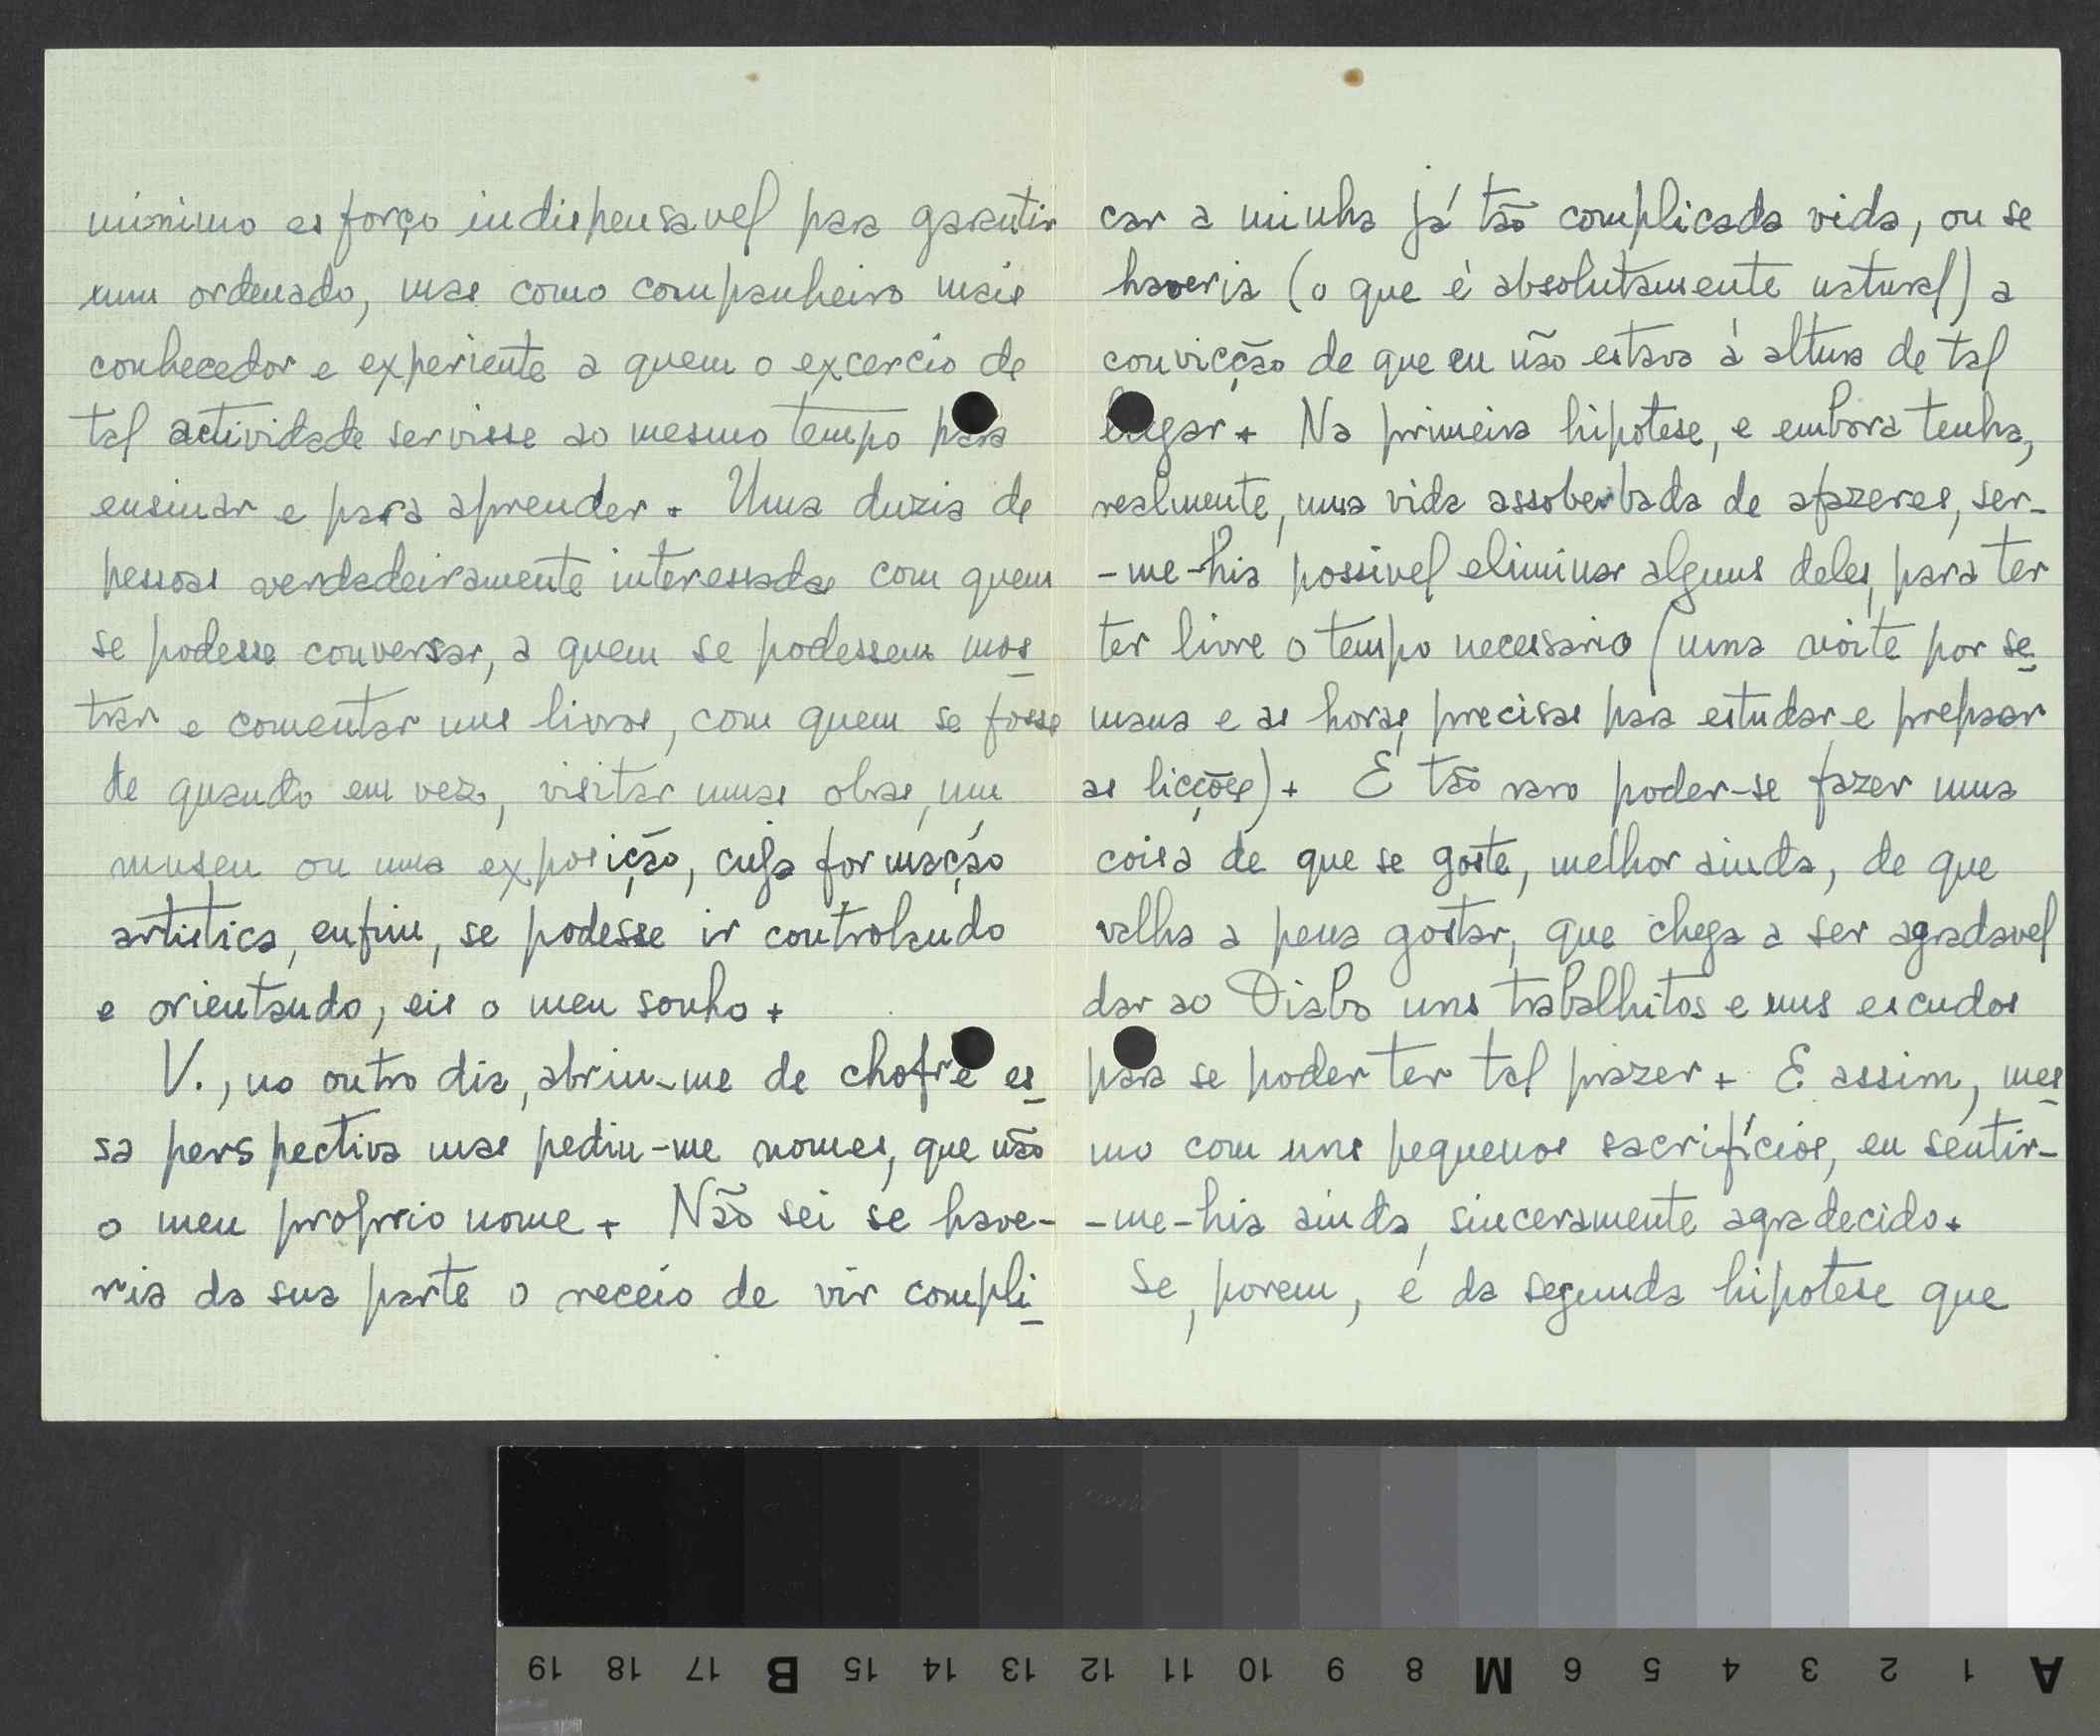 minimo esforço indispensavel para garantir
um ordenado, mas como companheiro mais
conhecedor e experiente a quem o excercio de
tal actividade servisse ao mesmo tempo para
ensinar e para aprender. Uma duzia de
pessoas verdadeiramente interessadas com quem
se podesse conversar, a quem se podessem mos
trar e comentar uns livros, com quem se fosse
de quando em vez, visitar umas obras, um
museu ou uma exposição, cuja formação
artistica, enfim, se podesse ir controlando
e orientando, eis o meu sonho.
V., no outro dia, abriu-me de chofre es
sa perspectiva mas pediu-me nomes, que não
o meu proprio nome. Não sei se have-
ria da sua parte o receio de vir compli
car a minha já tão complicada vida, ou se
haveria (o que é absolutamente natural) a
convicção de que eu não estava á altura de tal
lugar. Na primeira hipotese, e embora tenha,
realmente, uma vida assoberbada de afazeres, ser-
-me-hia possivel eliminar alguns deles, para ter
ter livre o tempo necessario (uma noite por se
mana e as horas precisas para estudar e preparar
as licções). É tão raro poder-se fazer uma
coisa de que se goste, melhor ainda, de que
valha a pena gostar, que chega a ser agradavel
dar ao Diabo uns trabalhitos e uns escudos
para se poder ter tal prazer. E assim, mes
mo com uns pequenos sacrifícios, eu sentir-
-me-hia ainda, sinceramente agradecido.
Se, porem, é da segunda hipotese que
A 1 2 3 4 5 6 M 8 9 10 11 12 13 14 15 B 17 18 19